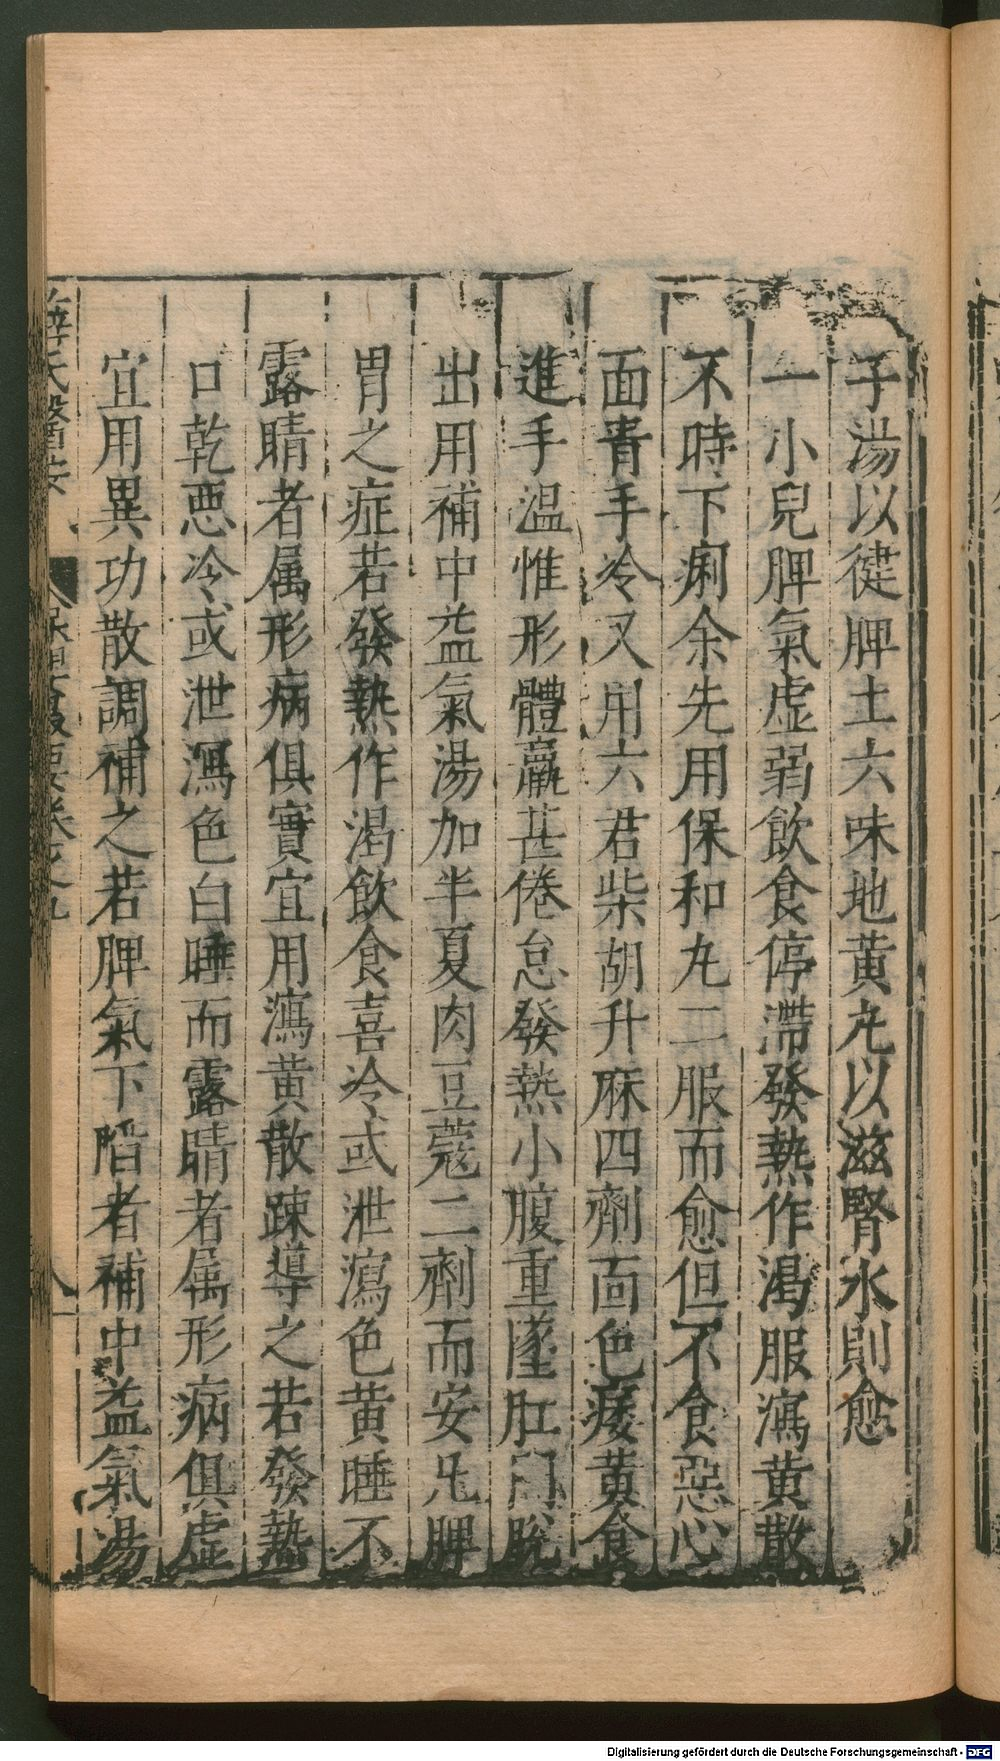 子湯以徤脾土六味地黄𠃵以滋腎水則愈
一小兒脾氣虚弱飲食停滯發熱作渴服瀉黄散
不時下痢余先用保和𠃵二服而愈但不食惡心
面青手冷又用六君柴胡升麻四劑面色痿黄食
進手温惟形體羸甚倦怠發熱小腹重墜肛門脱
出用補中益氣湯加半夏肉豆蔻二劑而安凡脾
胃之症若發熱作渴飲食喜冷或泄瀉色黄睡不
露睛者属形病俱實宜用瀉黄散踈導之若發熱
口乾悪冷或泄瀉色白睡而露睛者属形病俱虚
宜用異功散調補之若脾氣下陷者補中益氣湯
薛氏醫按 保嬰撮要卷之九 八
Digitalisierung gefördert durch die Deutsche Forschungsgemeinschaft - DFG